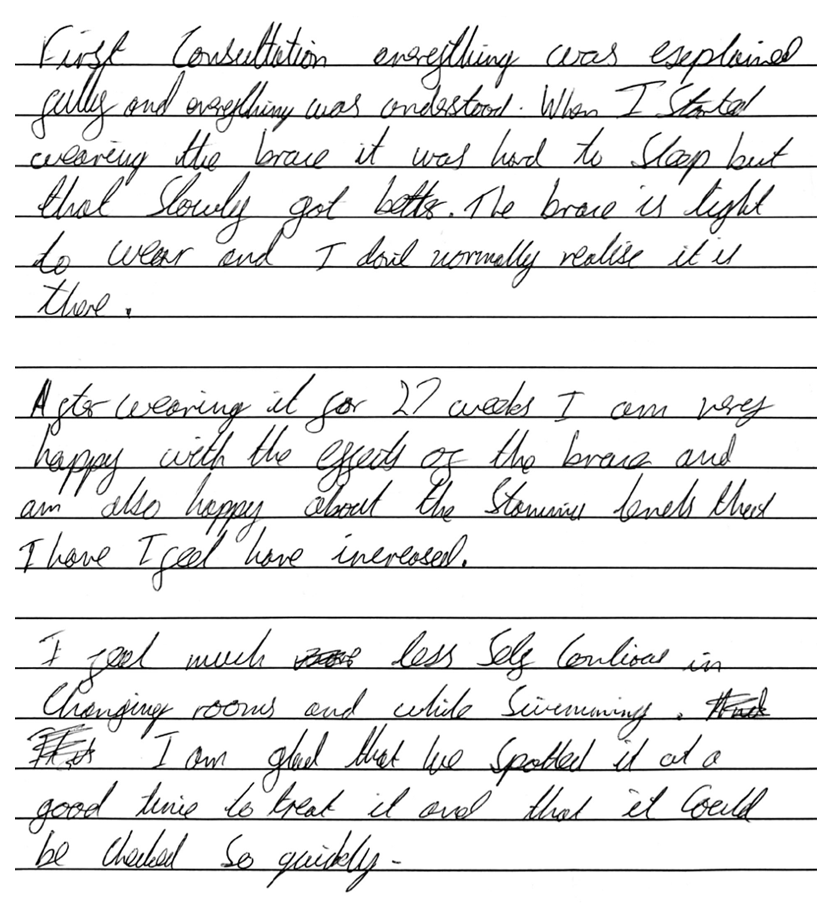 First Consultation everything was explained
fully and everything was understood. When I started
wearing the brace it was hard to Sleep but
that Slowly got better. The brace is light
to wear and I don't normally realise it is
there.
After wearing it for 27 weeks I am very
happy with the effects of the brace and
am also happy about the Stamina levels that
I have I feel have increased.
I feel much less Self Contious in
Changing rooms and while Swimming.
I am glad that we spotted it at a
good time to treat it and that it Could
be Checked So quickly -